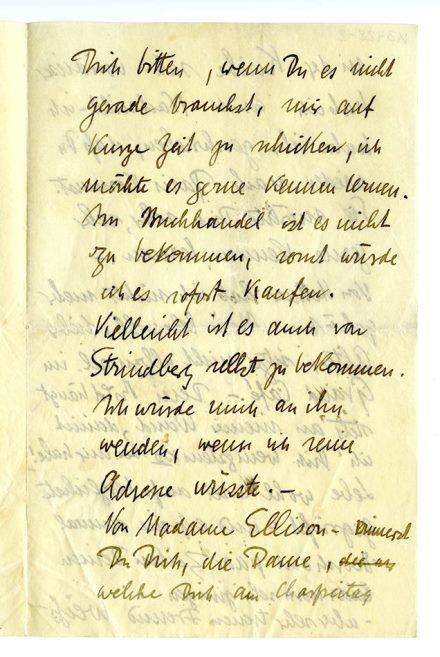 Dich bitten, wenn Du es nicht
gerade brauchst, mir auf
kurze Zeit zu schicken, ich
möchte es gerne kennen lernen.
Im Buchhandel ist es nicht
zu bekommen, sonst würde
ich es sofort kaufen.
Vielleicht ist es auch von
Strindberg selbst zu bekommen.
Ich würde mich an ihn
wenden, wenn ich seine
Adresse wüsste. —
Von Madame Ellison – erinnerst
Du Dich, die Dame, die
welche Dich am Charfreitag